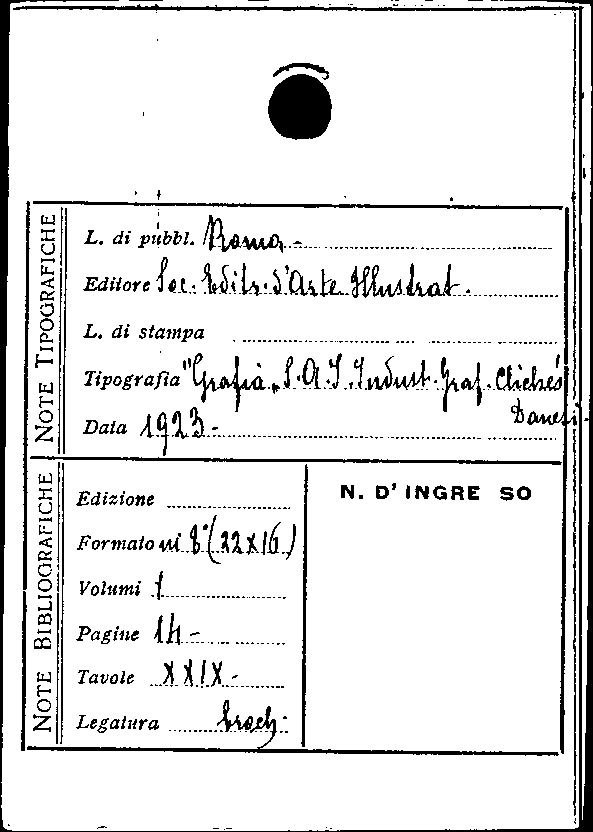 NOTE TIPOGRAFICHE
L. di pubbl. Roma -
Editore Soc. Editr. d'Arte Illustrat.
L. di stampa
Tipografia "Grafia" S.A.I. Indust. Graf. Clichés
Danesi
Data 1923 -
NOTE BIBLIOGRAFICHE
Edizione
Formato in 8° (22x16)
Volumi 1
Pagine 14 -
Tavole XXIX -
Legatura broch.
N. D'INGRE SO